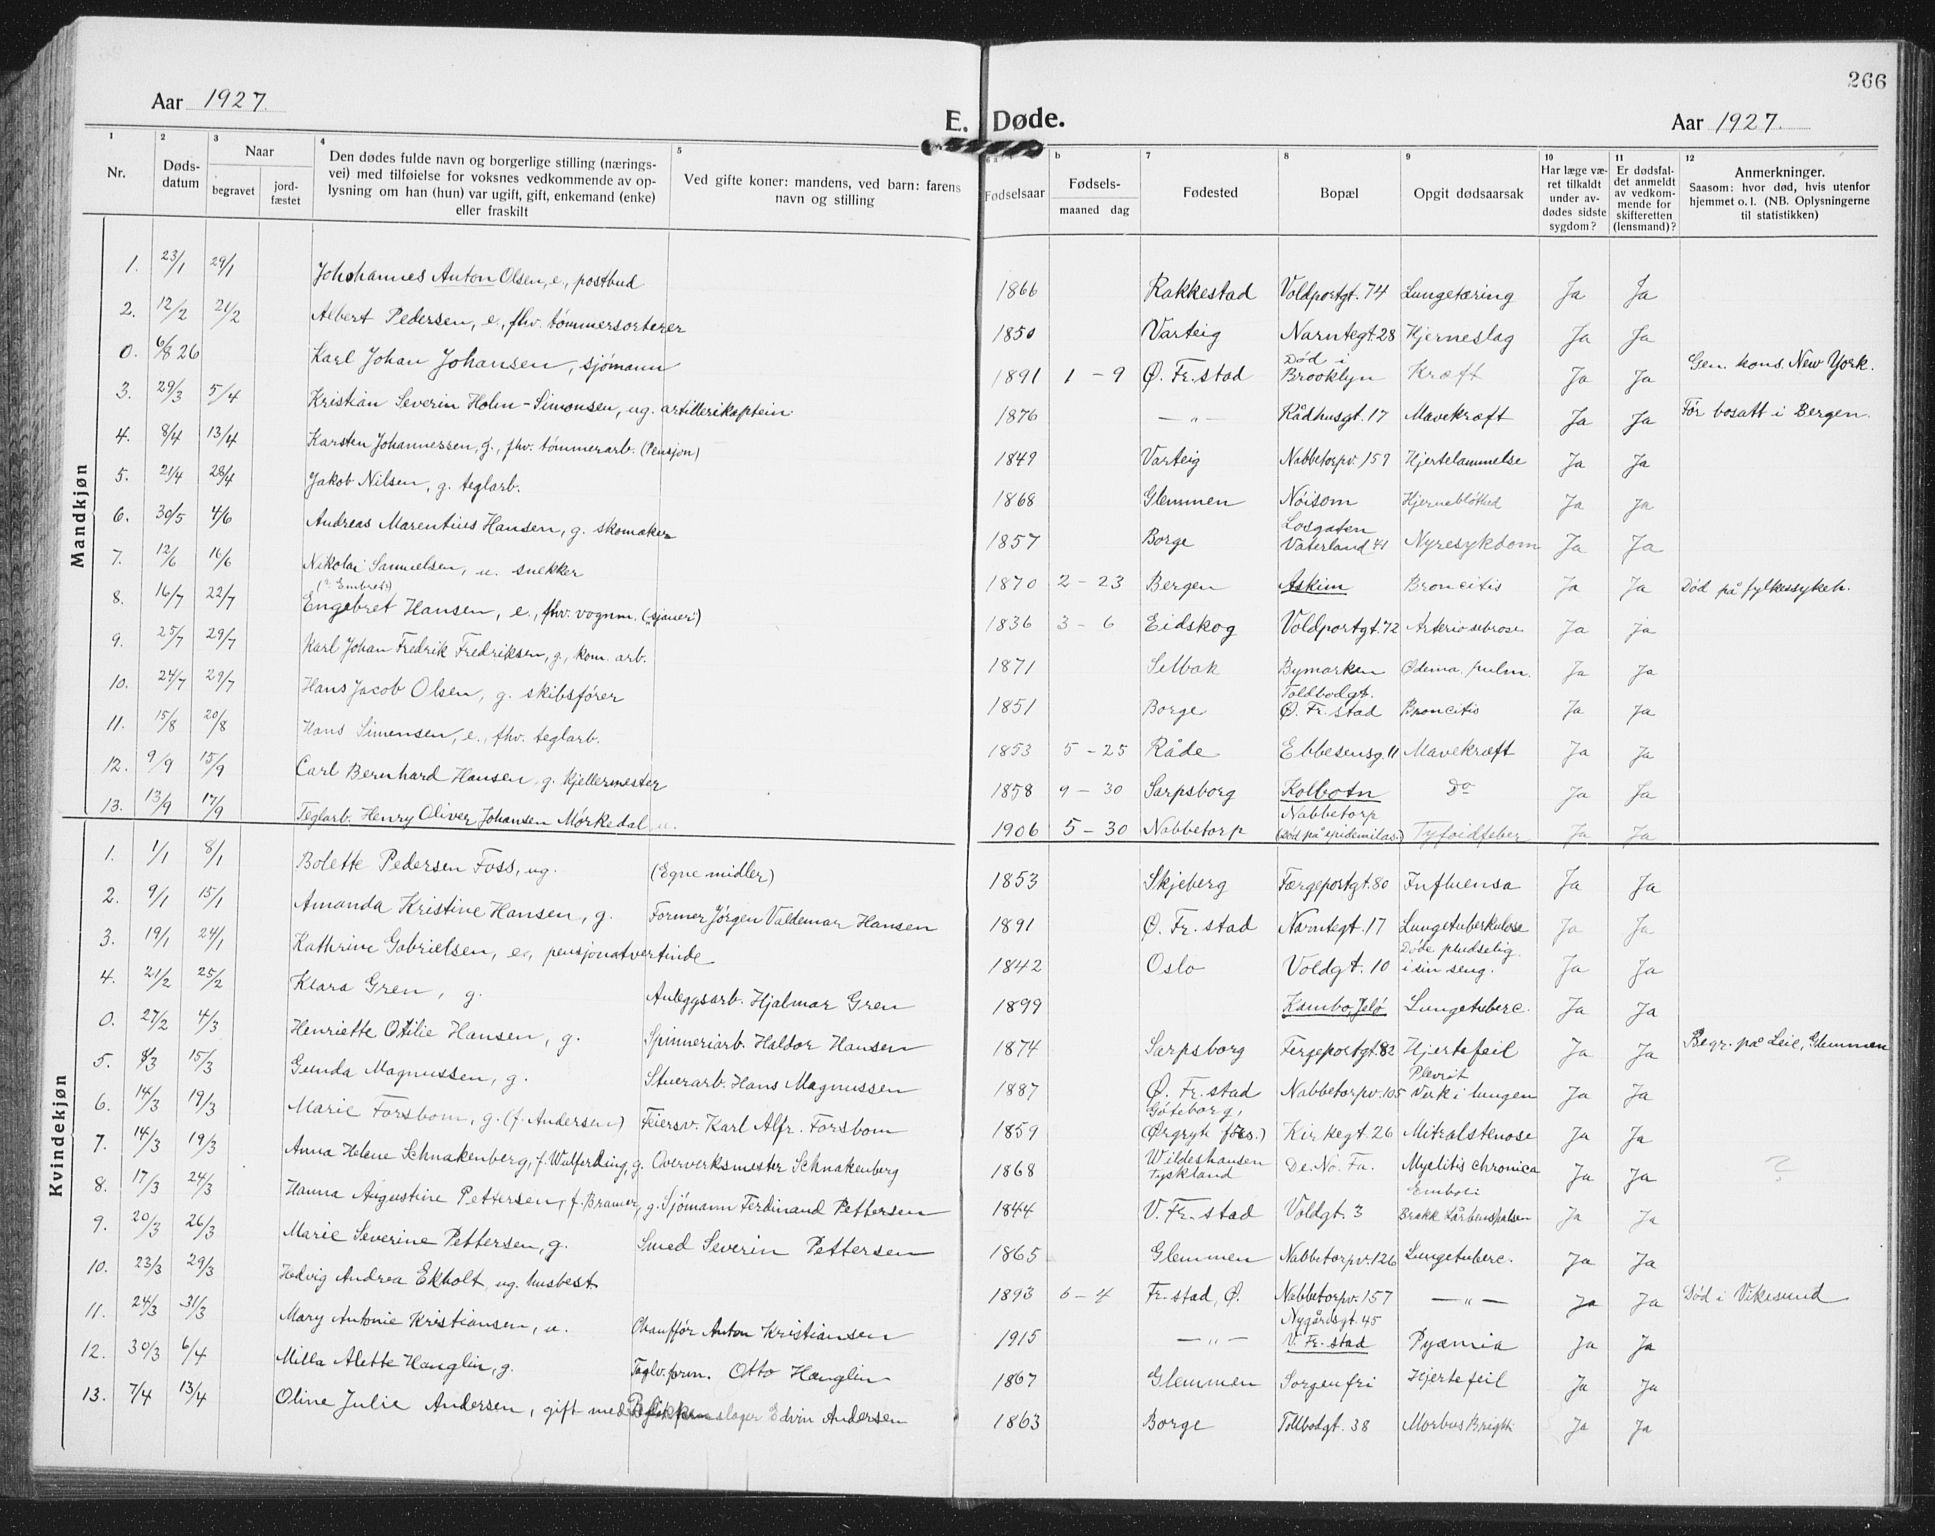 266
Aar 1927.
E. Døde.
Aar 1927.
1 2 3 4 5 6 a b 7 8 9 10 11 12
Nr.
Døds-
datum
Naar
begravet
jord-
fæstet
Den dødes fulde navn og borgerlige stilling (nærings-
vei) med tilføielse for voksnes vedkommende av op-
lysning om han (hun) var ugift, gift, enkemand (enke)
eller fraskilt
Ved gifte koner: mandens, ved barn: farens
navn og stilling
Fødselsaar
Fødsels-
maaned dag
Fødested
Bopæl
Opgit dødsaarsak
Har læge væ-
ret tilkaldt
under av-
dødes sidste
sygdom?
Er dødsfal-
det anmeldt
av vedkom-
mende for
skifteretten
(lensmand)?
Anmerkninger.
Saasom: hvor død, hvis utenfor
hjemmet o. l. (NB. Oplysningerne
til statistikken)
Mandkjøn
1. 23/1 29/1 Johohannes Anton Olsen, e., postbud 1866 Rakkestad Voldportgt. 74 Lungetæring Ja Ja
2. 12/2 21/2 Albert Pedersen, e., fhv. tømmersorterer 1850 Varteig Narntegt. 28 Hjerneslag Ja Ja
0. 6/8 26 Karl Johan Johansen, sjømann 1891 1 - 9 Ø. Fr.stad Død i Brooklyn Kræft Ja Ja Gen. kons. New York.
3. 29/3 5/4 Kristian Severin Holm-Simonsen, ug. artillerikaptein 1876 —"— Rådhusgt. 17 Mavekræft Ja Ja Før bosatt i Bergen.
4. 8/4 13/4 Karsten Johannessen, g., fhv. tømmerarb. (Pensjon) 1849 Varteig Nabbetorpv. 159 Hjertelammelse Ja Ja
5. 21/4 28/4 Jakob Nilsen, g. teglarb. 1868 Glemmen Nøisom Hjernebløthed Ja Ja
6. 30/5 4/6 Andreas Marentius Hansen, g. skomaker 1857 Borge Losgaten Vaterland 41 Nyresykdom Ja Ja
7. 12/6 16/6 Nikolai Samuelsen, u. snekker 1870 2 - 23 Bergen Askim Broncitis Ja Ja Død på fylkessykeh.
(? Embret)
8. 16/7 22/7 Engebret Hansen, e., fhv. vognm. („sjauer") 1836 3 - 6 Eidskog Voldportgt. 72 Arteriosclrose Ja ja
9. 25/7 29/7 Karl Johan Fredrik Fredriksen, g., kom. arb. 1871 Selbak Bymarken Ødema. pulm. Ja Ja
10. 24/7 29/7 Hans Jacob Olsen, g. skibsfører 1851 Borge Toldbodgt. Ø. Fr. stad Broncitis Ja Ja
11. 15/8 20/8 Hans Simensen, e., fhv. teglarb. 1853 5 - 25 Råde Ebbesensg. 11 Mavekræft Ja Ja
12. 9/9 15/9 Carl Bernhard Hansen, g. Kjellermester 1858 9 - 30 Sarpsborg Kolbotn Do Ja Ja
13. 13/9 17/9 Teglarb. Henry Oliver Johansen Mørkedal u. 1906 5 - 30 Nabbetorp Nabbetorp (død på epidemilas.) Tyfoidfeber Ja Ja
Kvindekjøn
1. 1/1 8/1 Bolette Pedersen Foss, ug. (Egne midler) 1853 Skjeberg Færgeportgt. 80 Influensa Ja Ja
2. 9/1 15/1 Amanda Kristine Hansen, g. Former Jørgen Valdemar Hansen 1891 Ø. Fr. stad Narntegt. 17 Lungetuberkulose Ja Ja
3. 19/1 24/1 Kathrine Gabrielsen, e., pensjonatvertinde 1842 Oslo Voldgt. 10 Døde pludselig i sin seng. Ja Ja
4. 21/2 25/2 Klara Gren, g. Anleggsarb. Hjalmar Gren 1899 Kambo, Jelø Lungetuberc. Ja Ja
0. 27/2 4/3 Henriette Otilie Hansen, g. Spinneriarb. Haldor Hansen 1874 Sarpsborg Fergeportgt. 82 Hjertefeil Ja Ja Begr. på Leie, Glemmen
5. 8/3 15/3 Gunda Magnussen, g. Stuerarb. Hans Magnussen 1887 Ø. Fr. stad Nabbetorpv. 105 Plevrit Verk i lungen Ja Ja
6. 14/3 19/3 Marie Forsbom, g. (f. Andersen) Feiersv. Karl Alfr. Forsbom 1859 Göteborg, (Ørgryte fors.) Kirkegt. 26 Mitralstenose Ja Ja
7. 14/3 19/3 Anna Helene Schnakenberg, f. Wulferding, g. Oververksmester Schnakenberg 1868 Wildeshausen Tyskland De. No. Fa. Myelitis chronica Ja Ja ?
8. 17/3 24/3 Hanna Augustine Pettersen, f. Bramer, g. Sjømann Ferdinand Pettersen 1844 V. Fr. stad Voldgt. 3 Emboli Brakk Lårbenshalsen Ja Ja
9. 20/3 26/3 Marie Severine Pettersen, g. Smed Severin Pettersen 1865 Glemmen Nabbetorpv. 126 Lungetuberc. Ja Ja
10. 23/3 29/3 Hedvig Andrea Ekholt, ug. husbest. 1893 6 - 4 Fr. stad, Ø. Nabbetorpv. 157 —"— Ja Ja Død i Vikesund
11. 24/3 31/3 Mary Antonie Kristiansen, u. Chauffør Anton Kristiansen 1915 —"— Nygårdsgt. 45 V. Fr. stad Pyæmia Ja Ja
12. 30/3 6/4 Milla Alette Hanglin, g. Teglv.form. Otto Hanglin 1867 Glemmen Sorgenfri Hjertefeil Ja Ja
13. 7/4 13/4 Oline Julie Andersen, gift med Blikkenslager Edvin Andersen 1863 Borge Tollbodgt. 38 Morbus Brighti Ja Ja